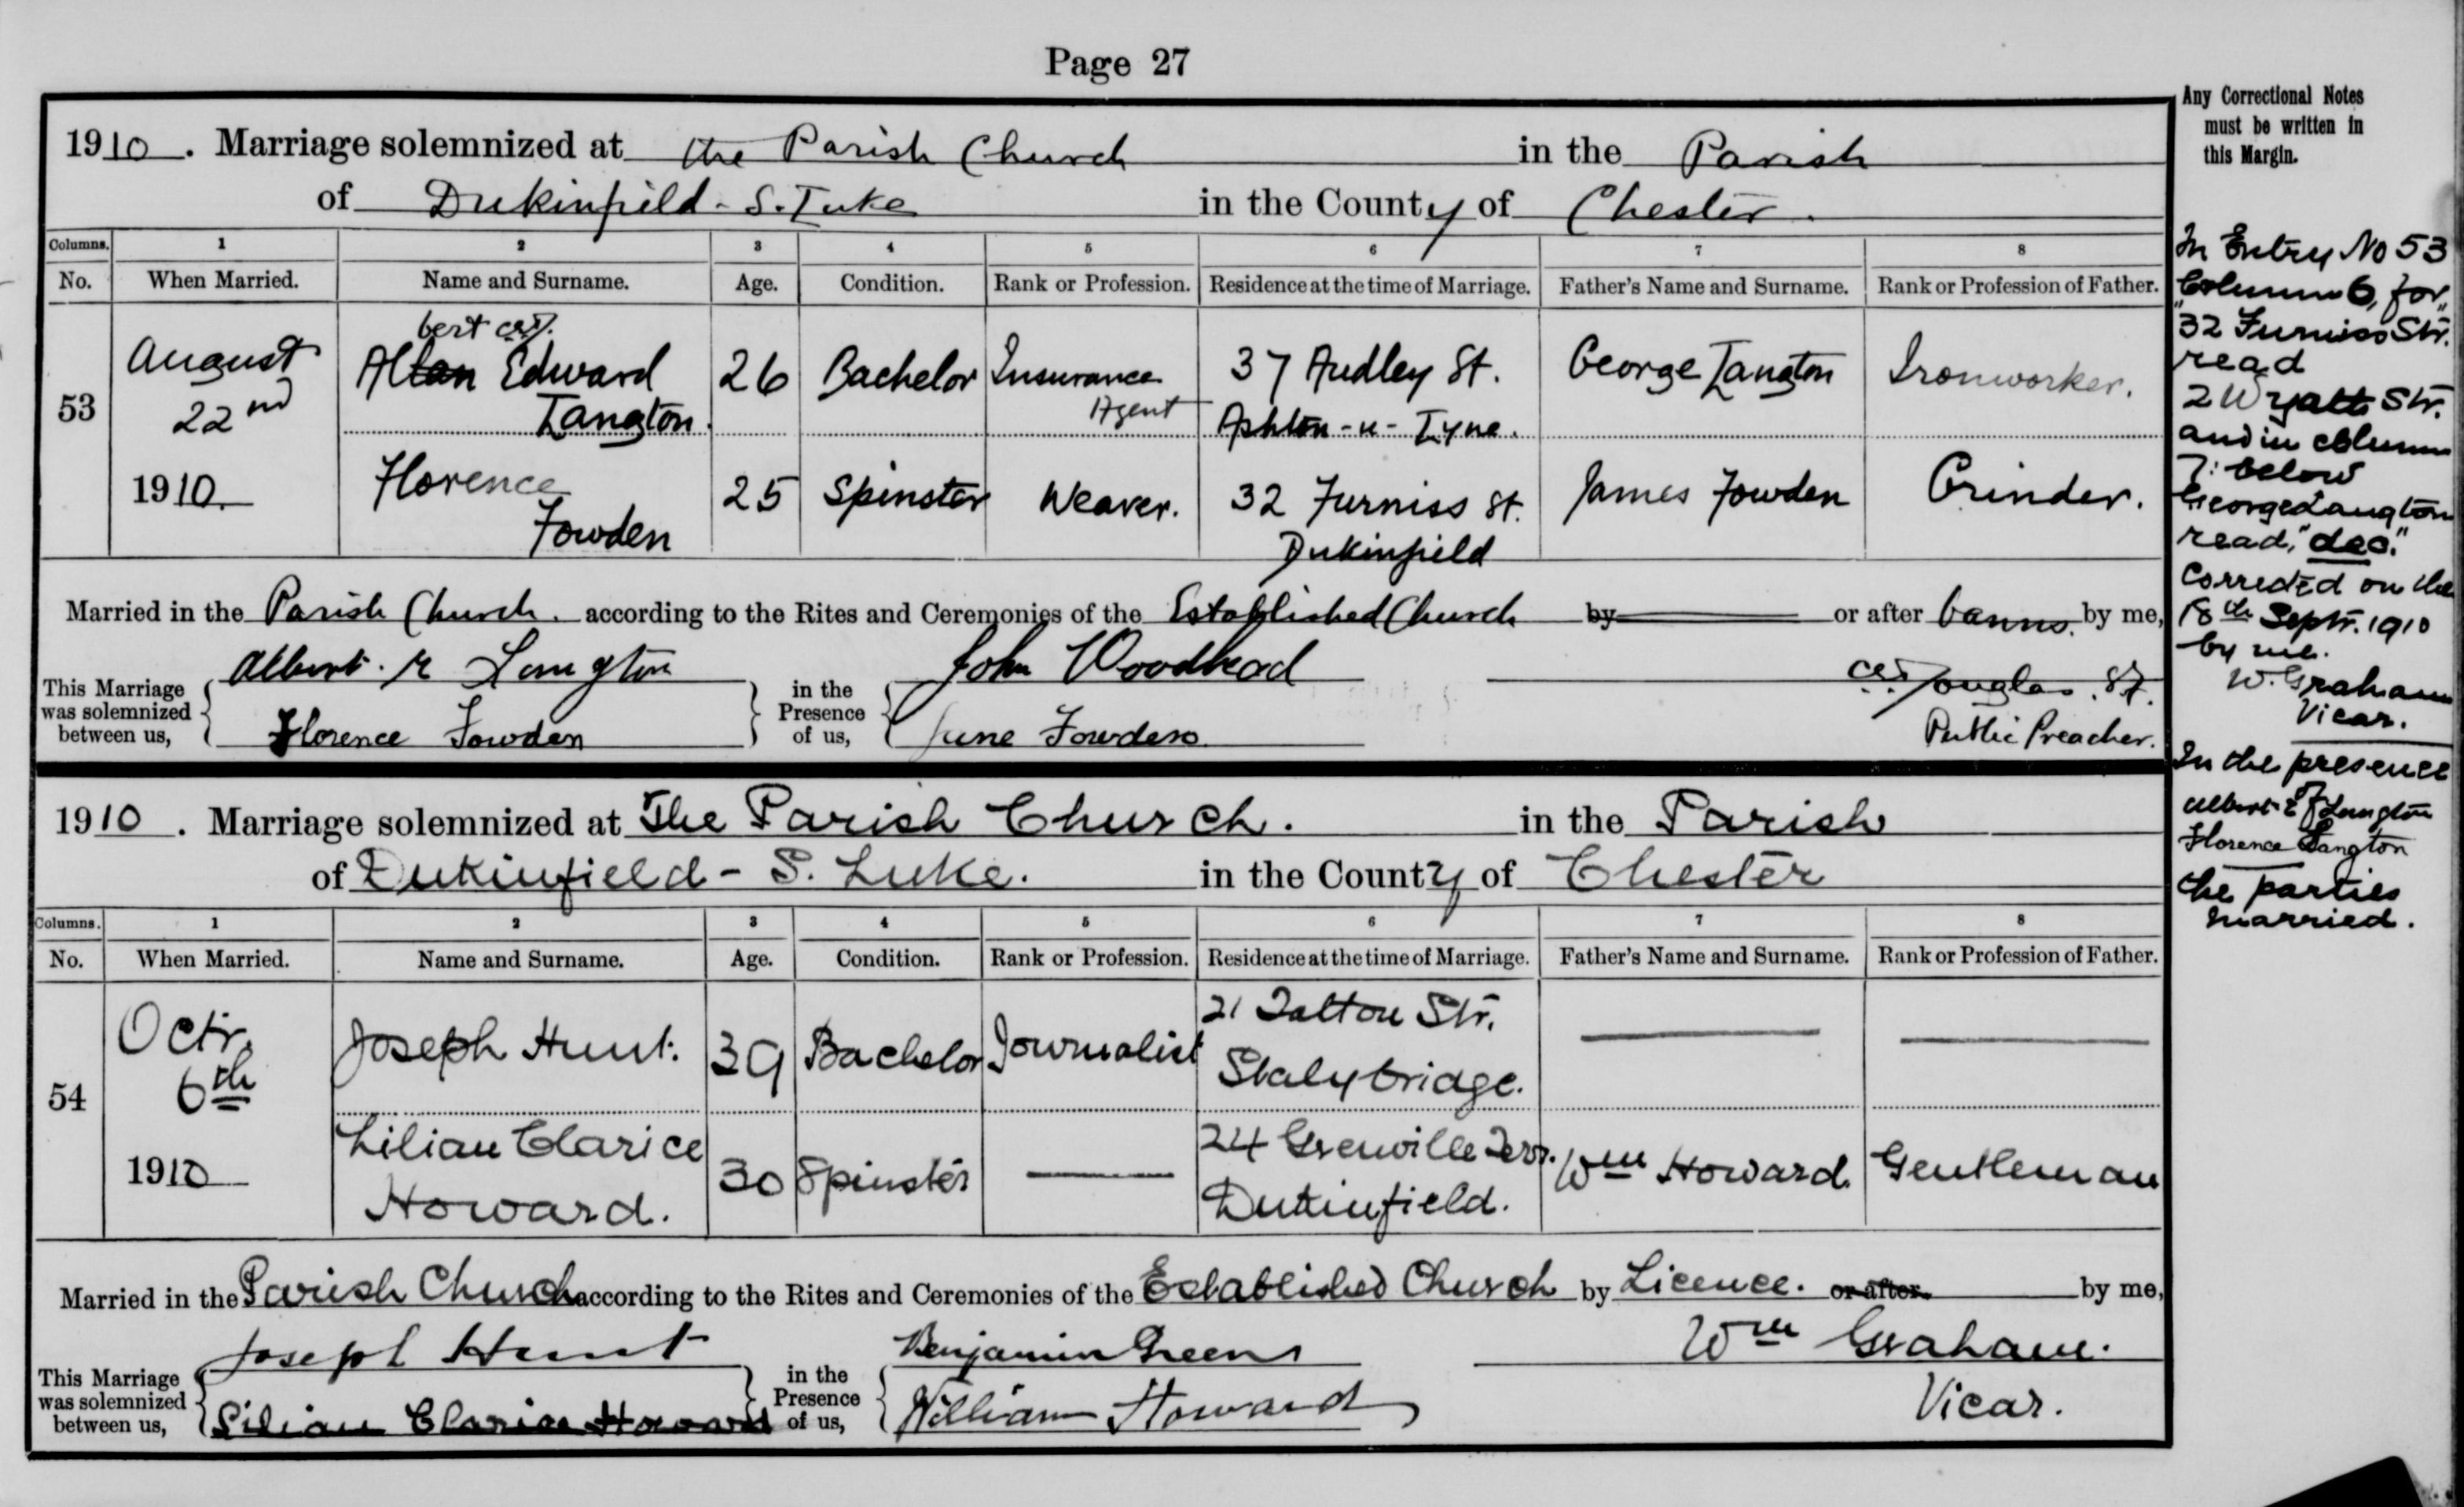 Page 27
Any Correctional Notes
must be written in
this Margin.
1910. Marriage solemnized at the Parish Church in the Parish
of Dukinfield - S. Luke in the County of Chester.
Columns. 1 2 3 4 5 6 7 8
No. When Married. Name and Surname. Age. Condition. Rank or Profession. Residence at the time of Marriage. Father's Name and Surname. Rank or Profession of Father.
bert
53 August 22nd 1910 Altan Edward Langton. 26 Bachelor Insurance Agent 37 Audley St. Ashton-u-Lyne. George Langton Ironworker.
Florence Fowden 25 Spinster Weaver. 32 Furniss St. Dukinfield James Fowden Grinder.
Married in the Parish Church. according to the Rites and Ceremonies of the Established Church by or after banns. by me,
This Marriage was solemnized between us, Albert Langton Florence Fowden in the Presence of us, John Woodhead June Fowden Douglas Public Preacher.
1910. Marriage solemnized at The Parish Church. in the Parish
of Dukinfield - S. Luke. in the County of Chester
Columns. 1 2 3 4 5 6 7 8
No. When Married. Name and Surname. Age. Condition. Rank or Profession. Residence at the time of Marriage. Father's Name and Surname. Rank or Profession of Father.
54 Octr. 6th 1910 Joseph Hunt. 39 Bachelor Journalist 21 Str. Stalybridge.
Lilian Clarice Howard. 30 Spinster 24 Grenville Terr. Dukinfield. Wm Howard. Gentleman
Married in the Parish Church according to the Rites and Ceremonies of the Established Church by Licence. or after by me,
This Marriage was solemnized between us, Joseph Hunt Lilian Clarice Howard in the Presence of us, Benjamin Greens William Howard Wm Graham. Vicar.
In Entry No 53
Column 6, for
"32 Furniss Str."
read
2 Wyatt Str.
and in column
7: below
George Langton
read, "dec."
Corrected on the
18th Septr. 1910
by me.
W. Graham
Vicar.
In the presence
of
Albert E Langton
Florence Langton
the parties
married.